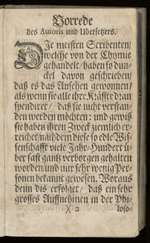 Vorrede
des Autoris und Ubersetzers.
DIe meisten Scribenten,
welche von der Chymie
gehandelt / haben so dun-
ckel davon geschrieben /
daß es das Ansehen gewonnen /
als wenn sie alle ihr Kräffte dran
spendiret / daß sie nicht verstan-
den werden möchten: und gewiß
sie haben ihren Zweck ziemlich er-
reichet / nachdem diese so edle Wis-
senschafft viele Jahr-Hundert ü-
ber fast gantz verborgen gehalten
worden und nur sehr wenig Per-
sonen bekannt gewesen. Vor aus
denn diß erfolget / daß ein sehr
grosses Auffnehmen in der Phi-
X 2 loso-